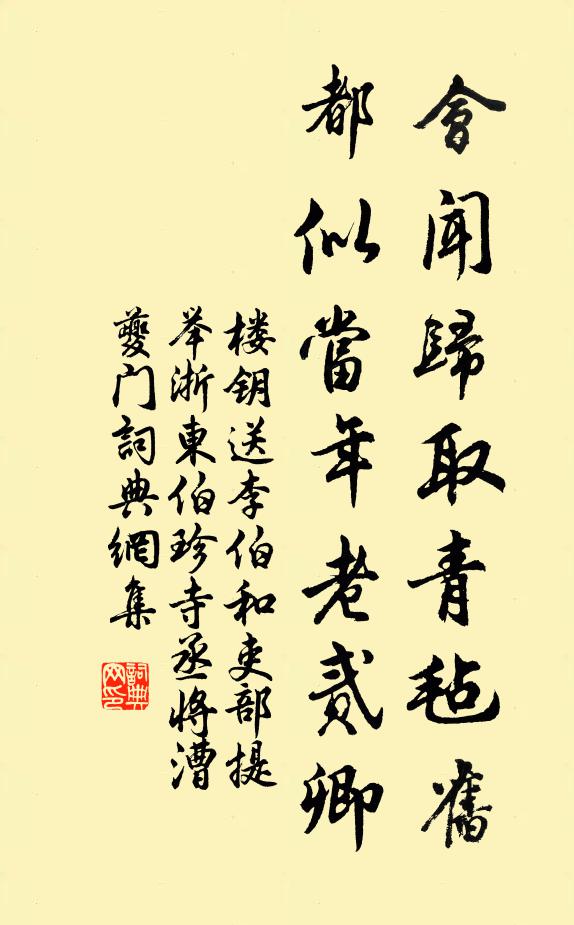 會聞歸取青毡舊
都似當年老貳卿
楼钥送李伯和吏部提
举浙東伯珍寺丞将漕
夔门詞典網集
詞典网印